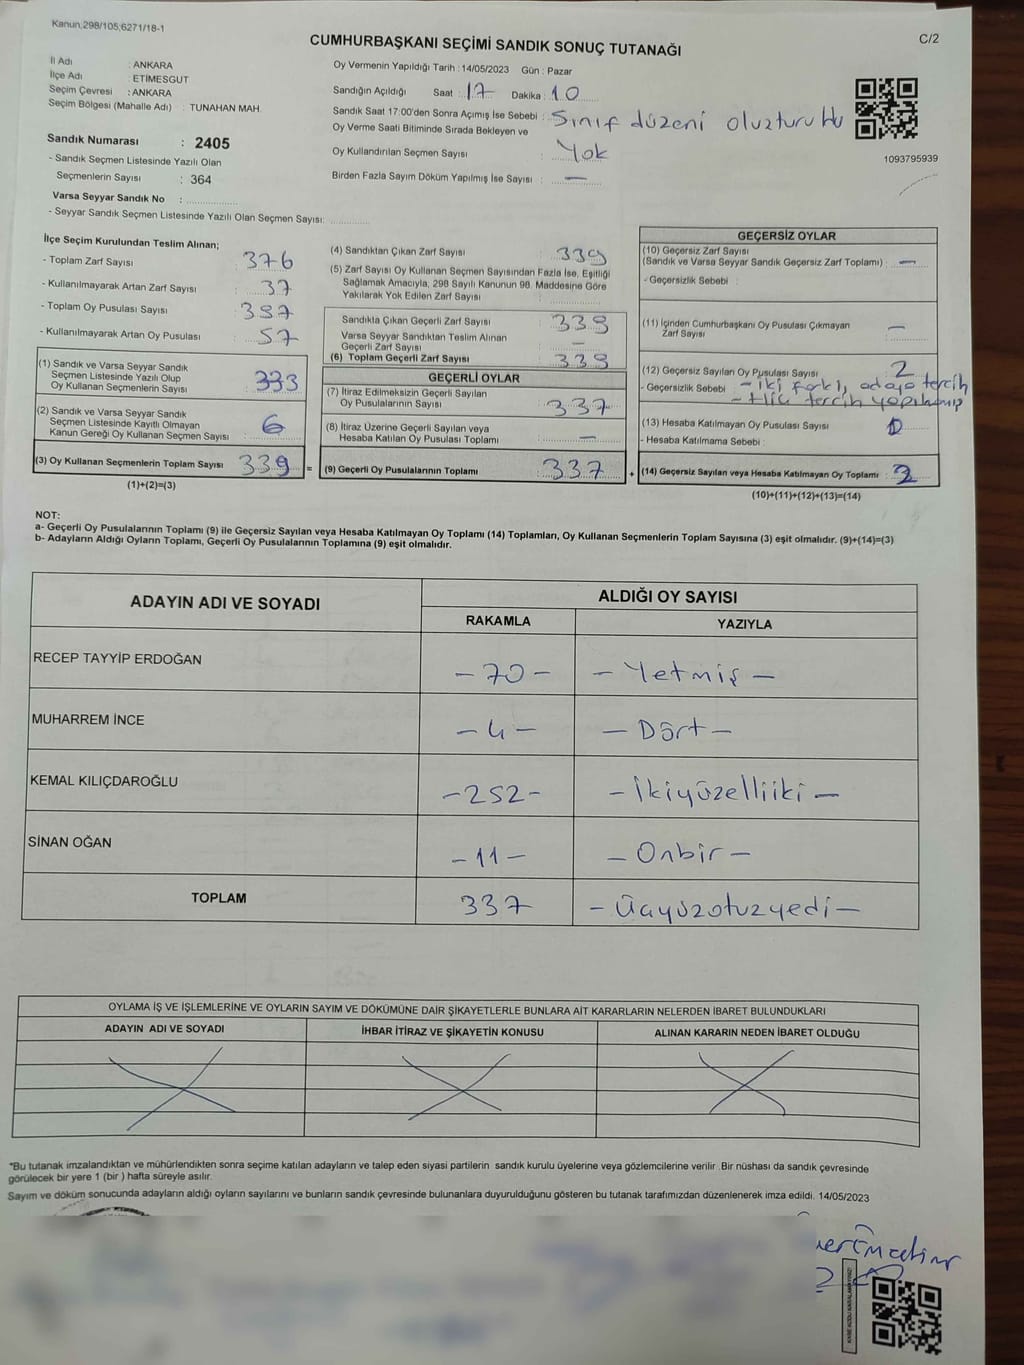 Kanun:298/105;6271/18-1
C/2
CUMHURBAŞKANI SEÇİMİ SANDIK SONUÇ TUTANAĞI
İl Adı : ANKARA
İlçe Adı : ETİMESGUT
Seçim Çevresi : ANKARA
Seçim Bölgesi (Mahalle Adı) : TUNAHAN MAH.
Sandık Numarası : 2405
- Sandık Seçmen Listesinde Yazılı Olan
Seçmenlerin Sayısı : 364
Varsa Seyyar Sandık No :
- Seyyar Sandık Seçmen Listesinde Yazılı Olan Seçmen Sayısı:
Oy Vermenin Yapıldığı Tarih : 14/05/2023 Gün : Pazar
Sandığın Açıldığı Saat : 17 Dakika : 10
Sandık Saat 17:00'den Sonra Açımış İse Sebebi : Sınıf düzeni
Oy Verme Saati Bitiminde Sırada Bekleyen ve
Oy Kullandırılan Seçmen Sayısı : Yok
Birden Fazla Sayım Döküm Yapılmış İse Sayısı : —
1093795939
İlçe Seçim Kurulundan Teslim Alınan;
- Toplam Zarf Sayısı : 376
- Kullanılmayarak Artan Zarf Sayısı : 37
- Toplam Oy Pusulası Sayısı :
- Kullanılmayarak Artan Oy Pusulası : 57
(1) Sandık ve Varsa Seyyar Sandık
Seçmen Listesinde Yazılı Olup
Oy Kullanan Seçmenlerin Sayısı : 333
(2) Sandık ve Varsa Seyyar Sandık
Seçmen Listesinde Kayıtlı Olmayan
Kanun Gereği Oy Kullanan Seçmen Sayısı : 6
(3) Oy Kullanan Seçmenlerin Toplam Sayısı : 339 =
(1)+(2)=(3)
(4) Sandıktan Çıkan Zarf Sayısı : 339
(5) Zarf Sayısı Oy Kullanan Seçmen Sayısından Fazla İse, Eşitliği
Sağlamak Amacıyla, 298 Sayılı Kanunun 98. Maddesine Göre
Yakılarak Yok Edilen Zarf Sayısı :
Sandıkta Çıkan Geçerli Zarf Sayısı : 339
Varsa Seyyar Sandıktan Teslim Alınan
Geçerli Zarf Sayısı : —
(6) Toplam Geçerli Zarf Sayısı : 339
GEÇERLİ OYLAR
(7) İtiraz Edilmeksizin Geçerli Sayılan
Oy Pusulalarının Sayısı : 337
(8) İtiraz Üzerine Geçerli Sayılan veya
Hesaba Katılan Oy Pusulası Toplamı : —
(9) Geçerli Oy Pusulalarının Toplamı : 337 +
GEÇERSİZ OYLAR
(10) Geçersiz Zarf Sayısı
(Sandık ve Varsa Seyyar Sandık Geçersiz Zarf Toplamı) : —
- Geçersizlik Sebebi :
(11) İçinden Cumhurbaşkanı Oy Pusulası Çıkmayan
Zarf Sayısı : —
(12) Geçersiz Sayılan Oy Pusulası Sayısı : 2
- Geçersizlik Sebebi : - iki farklı adaya tercih
- Hiç tercih yapılmamış
(13) Hesaba Katılmayan Oy Pusulası Sayısı : 0
- Hesaba Katılmama Sebebi :
(14) Geçersiz Sayılan veya Hesaba Katılmayan Oy Toplamı : 2
(10)+(11)+(12)+(13)=(14)
NOT:
a- Geçerli Oy Pusulalarının Toplamı (9) ile Geçersiz Sayılan veya Hesaba Katılmayan Oy Toplamı (14) Toplamları, Oy Kullanan Seçmenlerin Toplam Sayısına (3) eşit olmalıdır. (9)+(14)=(3)
b- Adayların Aldığı Oyların Toplamı, Geçerli Oy Pusulalarının Toplamına (9) eşit olmalıdır.
ADAYIN ADI VE SOYADI
ALDIĞI OY SAYISI
RAKAMLA YAZIYLA
RECEP TAYYİP ERDOĞAN - 70 - - Yetmiş -
MUHARREM İNCE - 4 - - Dört -
KEMAL KILIÇDAROĞLU - 252 - - İkiyüzelliiki -
SİNAN OĞAN - 11 - - Onbir -
TOPLAM 337 - Üçyüzotuzyedi -
OYLAMA İŞ VE İŞLEMLERİNE VE OYLARIN SAYIM VE DÖKÜMÜNE DAİR ŞİKAYETLERLE BUNLARA AİT KARARLARIN NELERDEN İBARET BULUNDUKLARI
ADAYIN ADI VE SOYADI İHBAR İTİRAZ VE ŞİKAYETİN KONUSU ALINAN KARARIN NEDEN İBARET OLDUĞU
*Bu tutanak imzalandıktan ve mühürlendikten sonra seçime katılan adayların ve talep eden siyasi partilerin sandık kurulu üyelerine veya gözlemcilerine verilir .Bir nüshası da sandık çevresinde
görülecek bir yere 1 (bir ) hafta süreyle asılır.
Sayım ve döküm sonucunda adayların aldığı oyların sayılarını ve bunların sandık çevresinde bulunanlara duyurulduğunu gösteren bu tutanak tarafımızdan düzenlenerek imza edildi. 14/05/2023
KARE KODU KARALAMAYINIZ!